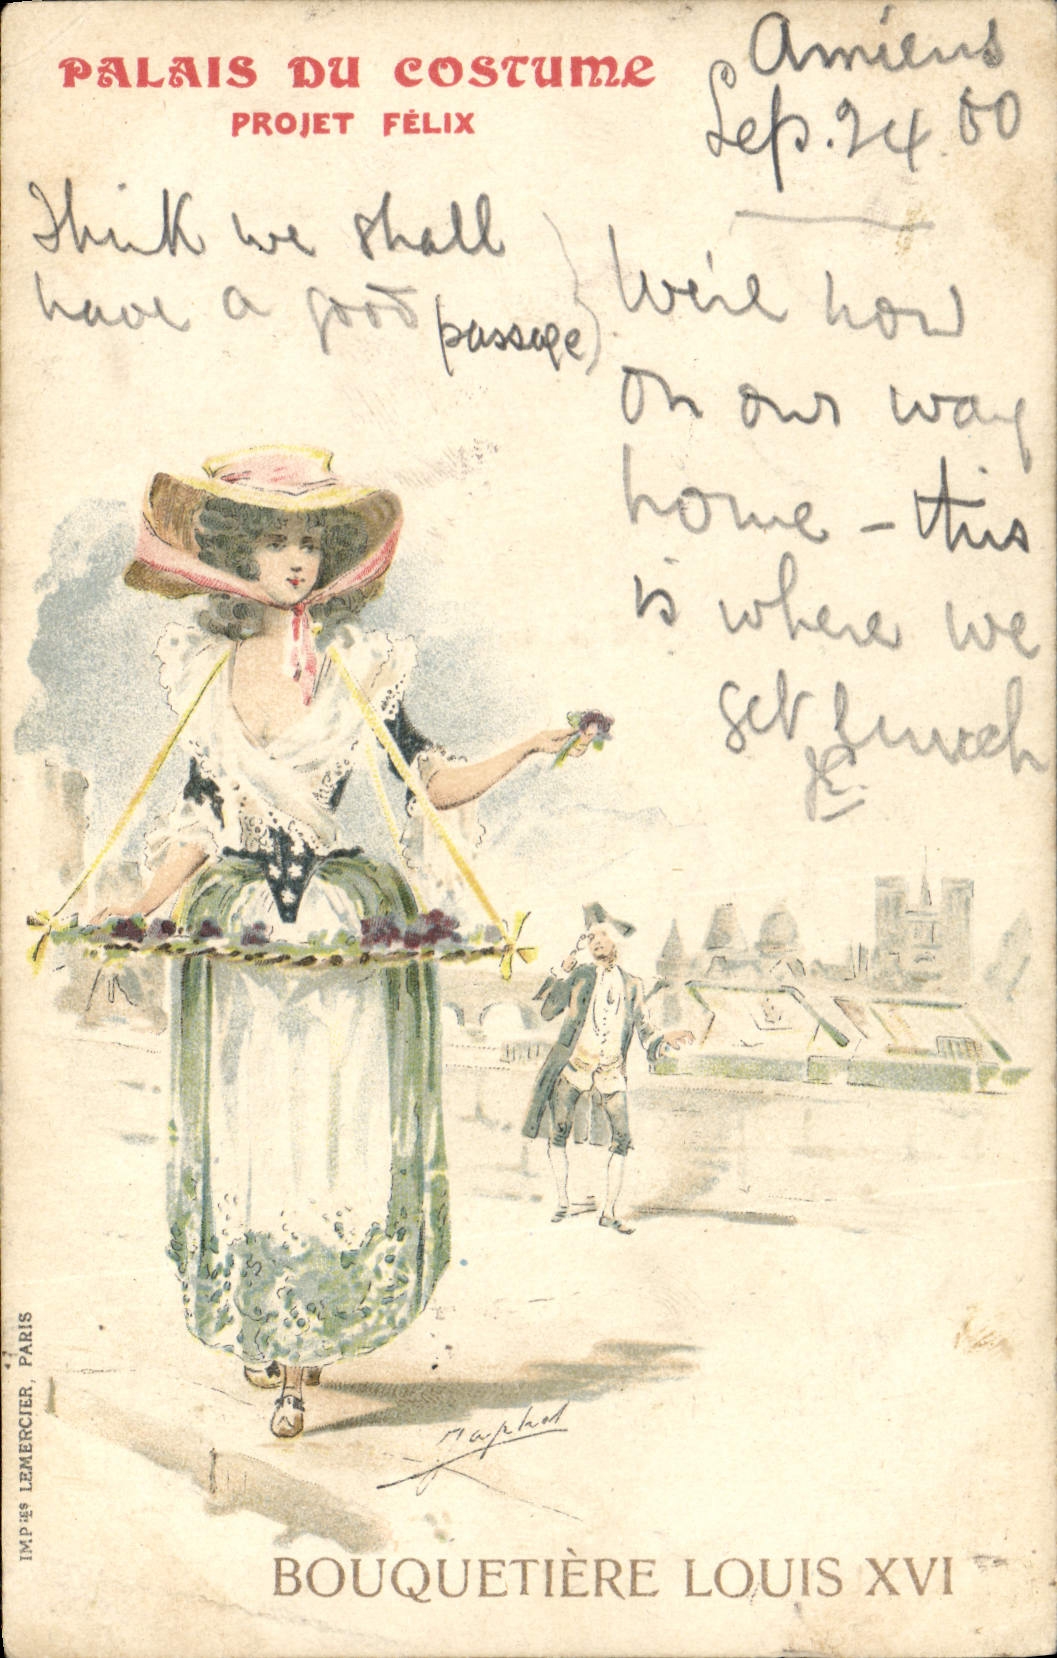 PALAIS DU COSTUME
PROJET FÉLIX
Amiens
Sep. 24. 00
Think we shall
have a good
passage
We're now
on our way
home – this
is where we
get lunch
BOUQUETIÈRE LOUIS XVI
IMP ies LEMERCIER, PARIS